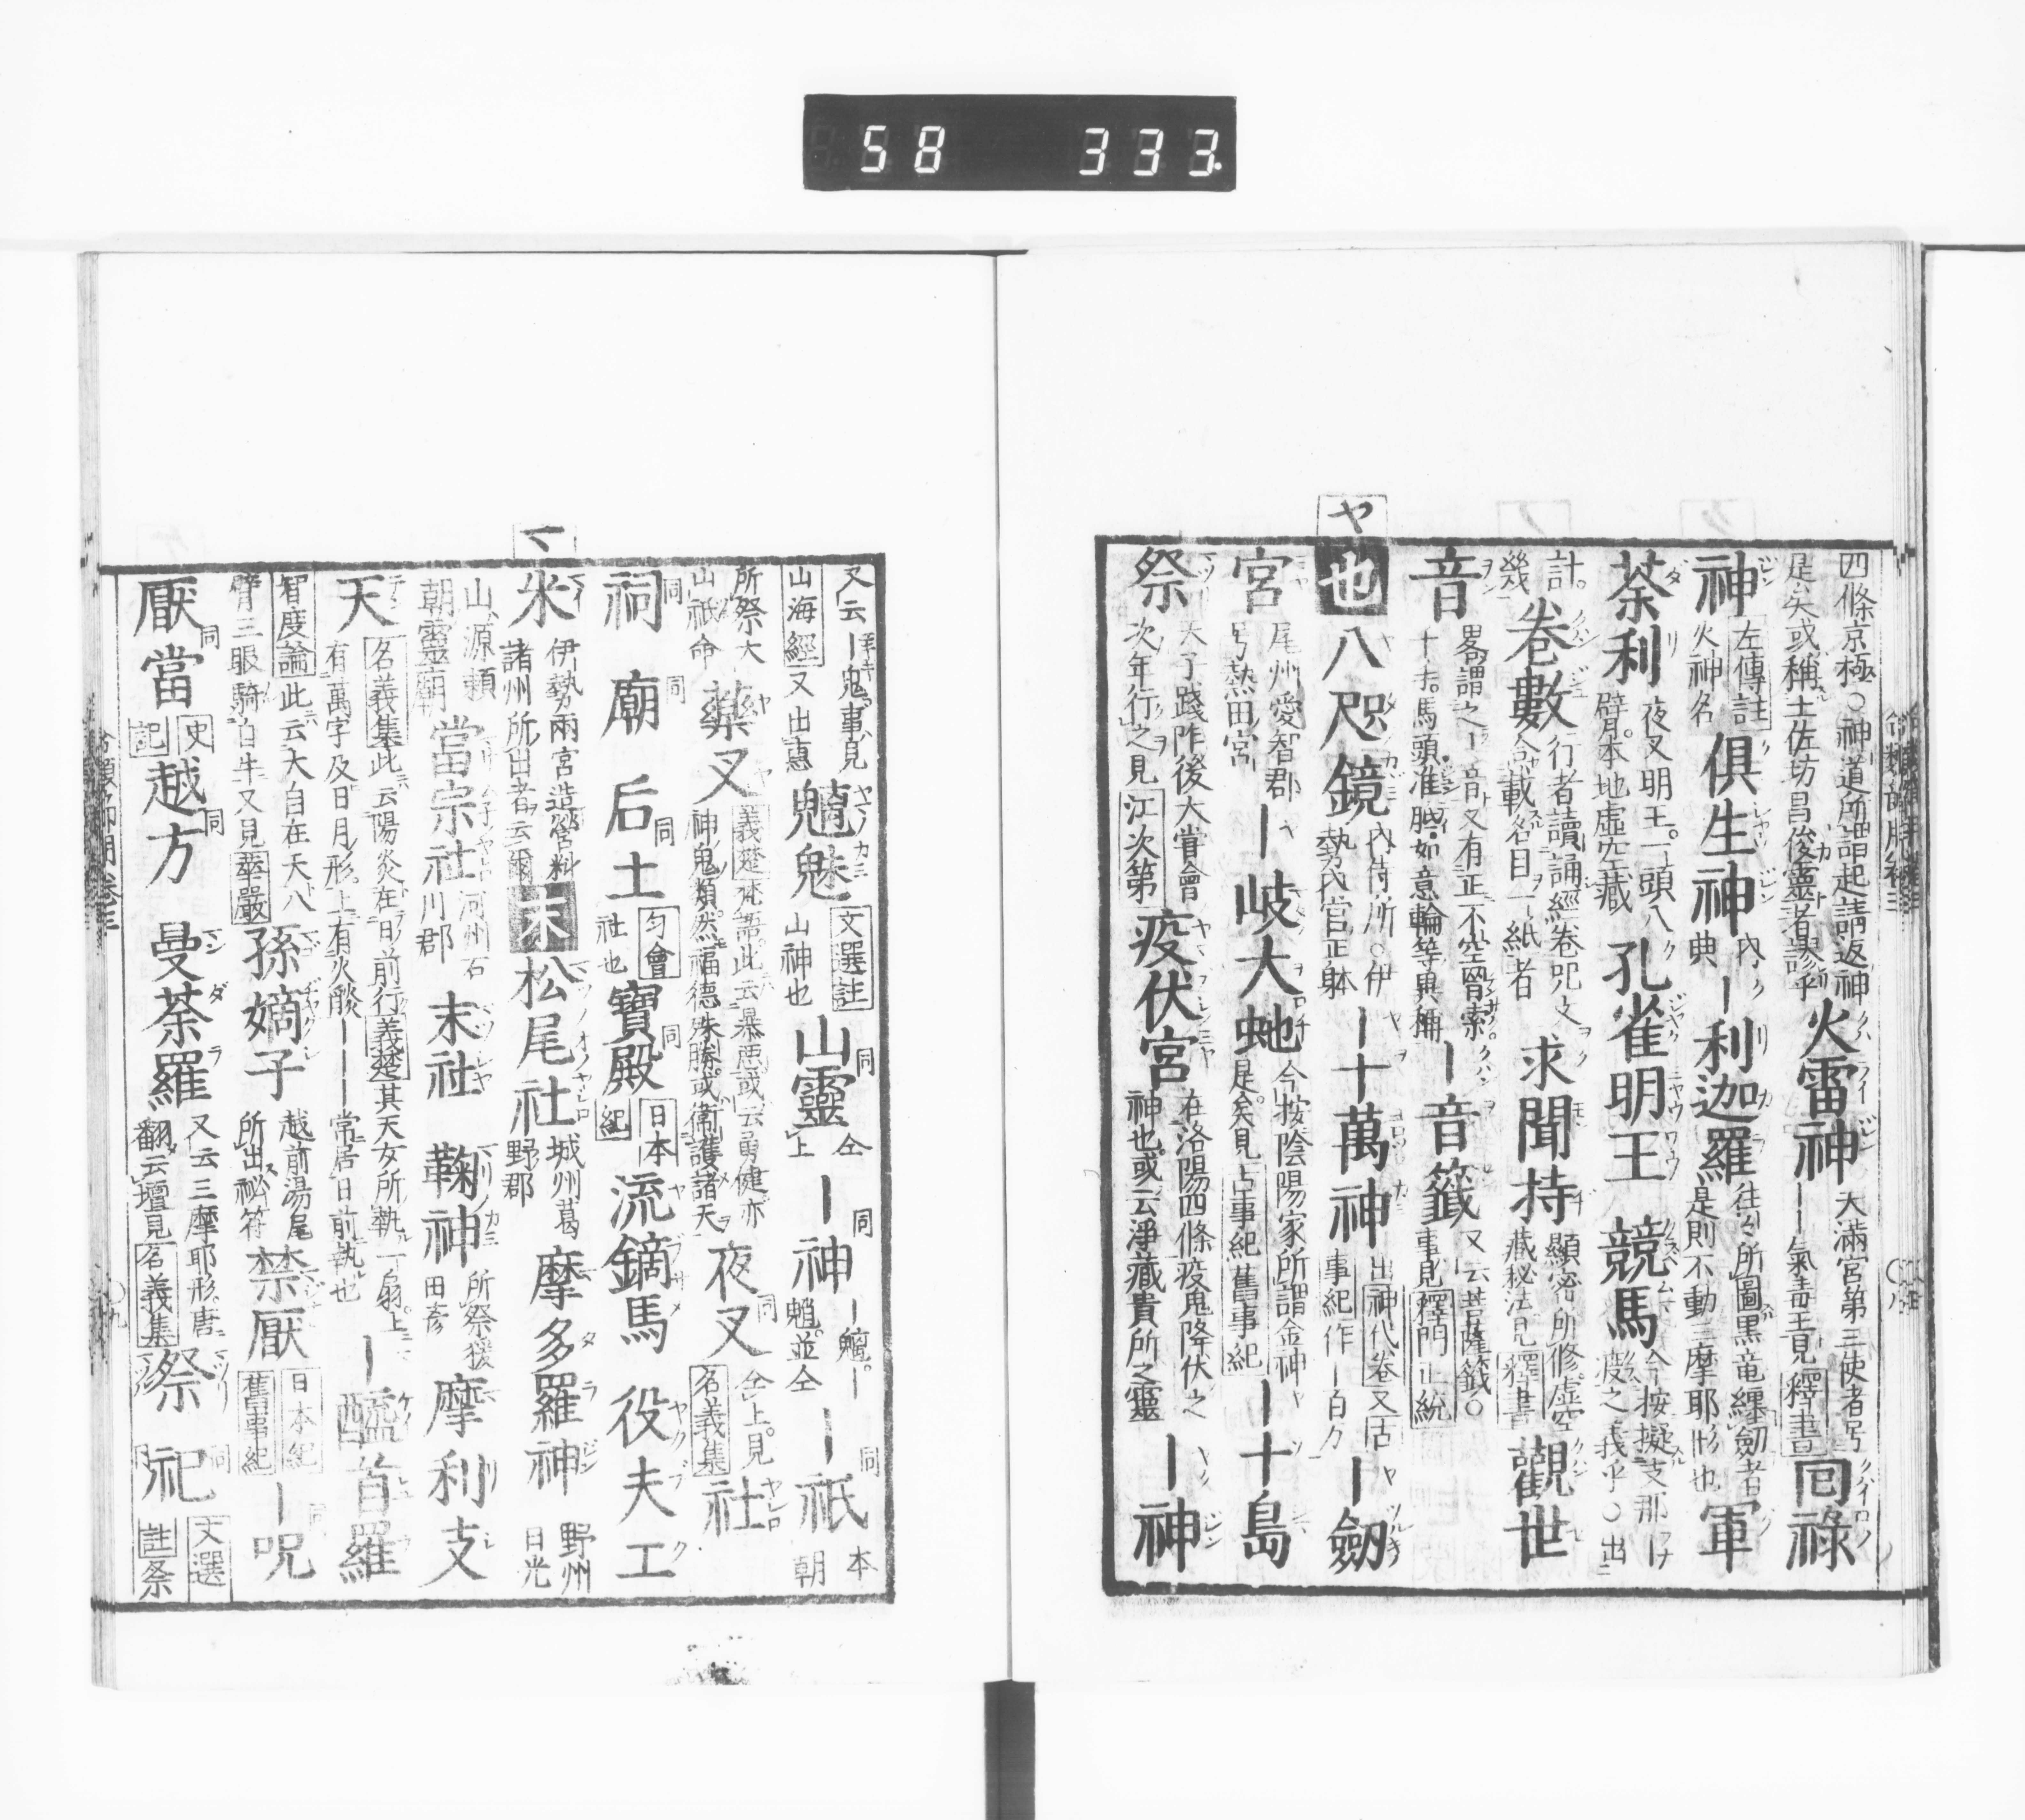 58 333
四條京極○神道所謂起請返神
是矣或稱土佐坊昌俊靈者謬乎
火雷神
天滿宮第三使者号
――氣毒王見釋書
回祿
神
左傳註
火神名
俱生神
内
典
―利迦羅
往々所圖黒竜纏劔者
是則不動三摩耶形也
軍
荼利
夜叉明王一頭八
臂本地虛空藏
孔雀明王
競馬
今按擬支那
渡之戲乎○出
計
幾
卷數
行者讀誦經卷咒文
合載名目一紙者
求聞持
顯密所修虛空
藏秘法見釋書
觀世
音
畧謂之―音又有正不空羂索
十一手馬頭准胝如意輪等異稱
―音籤
又云普隆籤○
事見釋門正統
ヤ
也
八咫鏡
内侍所○伊
勢代官正躰
―十萬神
出神代卷又古
事紀作―百万
―劒
宮
尾州愛智郡
号熱田宮
―岐大虵
今按陰陽家所謂金神
是矣見古事紀舊事紀
―十島
祭
天子踐阼後大嘗會
次年行之見江次第
疫伏宮
在洛陽四條疫鬼降伏之
神也或云淨藏貴所之靈
―神
又云―鬼事見
山海經又出惠
魑魅
文選註
山神也
山靈
同
仝上
―神
同
―魑―
魈並仝
―祇
同
本朝
所祭大
山祇命
藥叉
義楚梵語此云暴惡或云勇健亦
神鬼類然福德殊勝或衞護諸天
夜叉
同
仝上見
名義集
社
祠
同
廟
同
后土
同
匀會
社也
寶殿
同
日本紀
流鏑馬
役夫工
マ
米
伊勢兩宮造營料
諸州所出者云爾
末
松尾社
城州葛
野郡
摩多羅神
野州
日光
山源賴
朝靈廟
當宗社
河州石
川郡
末社
鞠神
所祭猨
田彥
摩利支
天
名義集此云陽炎在日前行義楚其天女所執一扇上
有萬字及日月形上有火熖―――常居日前執也
―醯首羅
智度論此云大自在天八
臂三眼騎白牛又見華嚴
孫嫡子
越前湯尾
所出祕符
禁厭
日本紀
舊事紀
―呪
同
厭當
同
史記
越方
同
曼荼羅
又云三摩耶形唐
翻云壇見名義集
祭
祀
同
文選
註祭